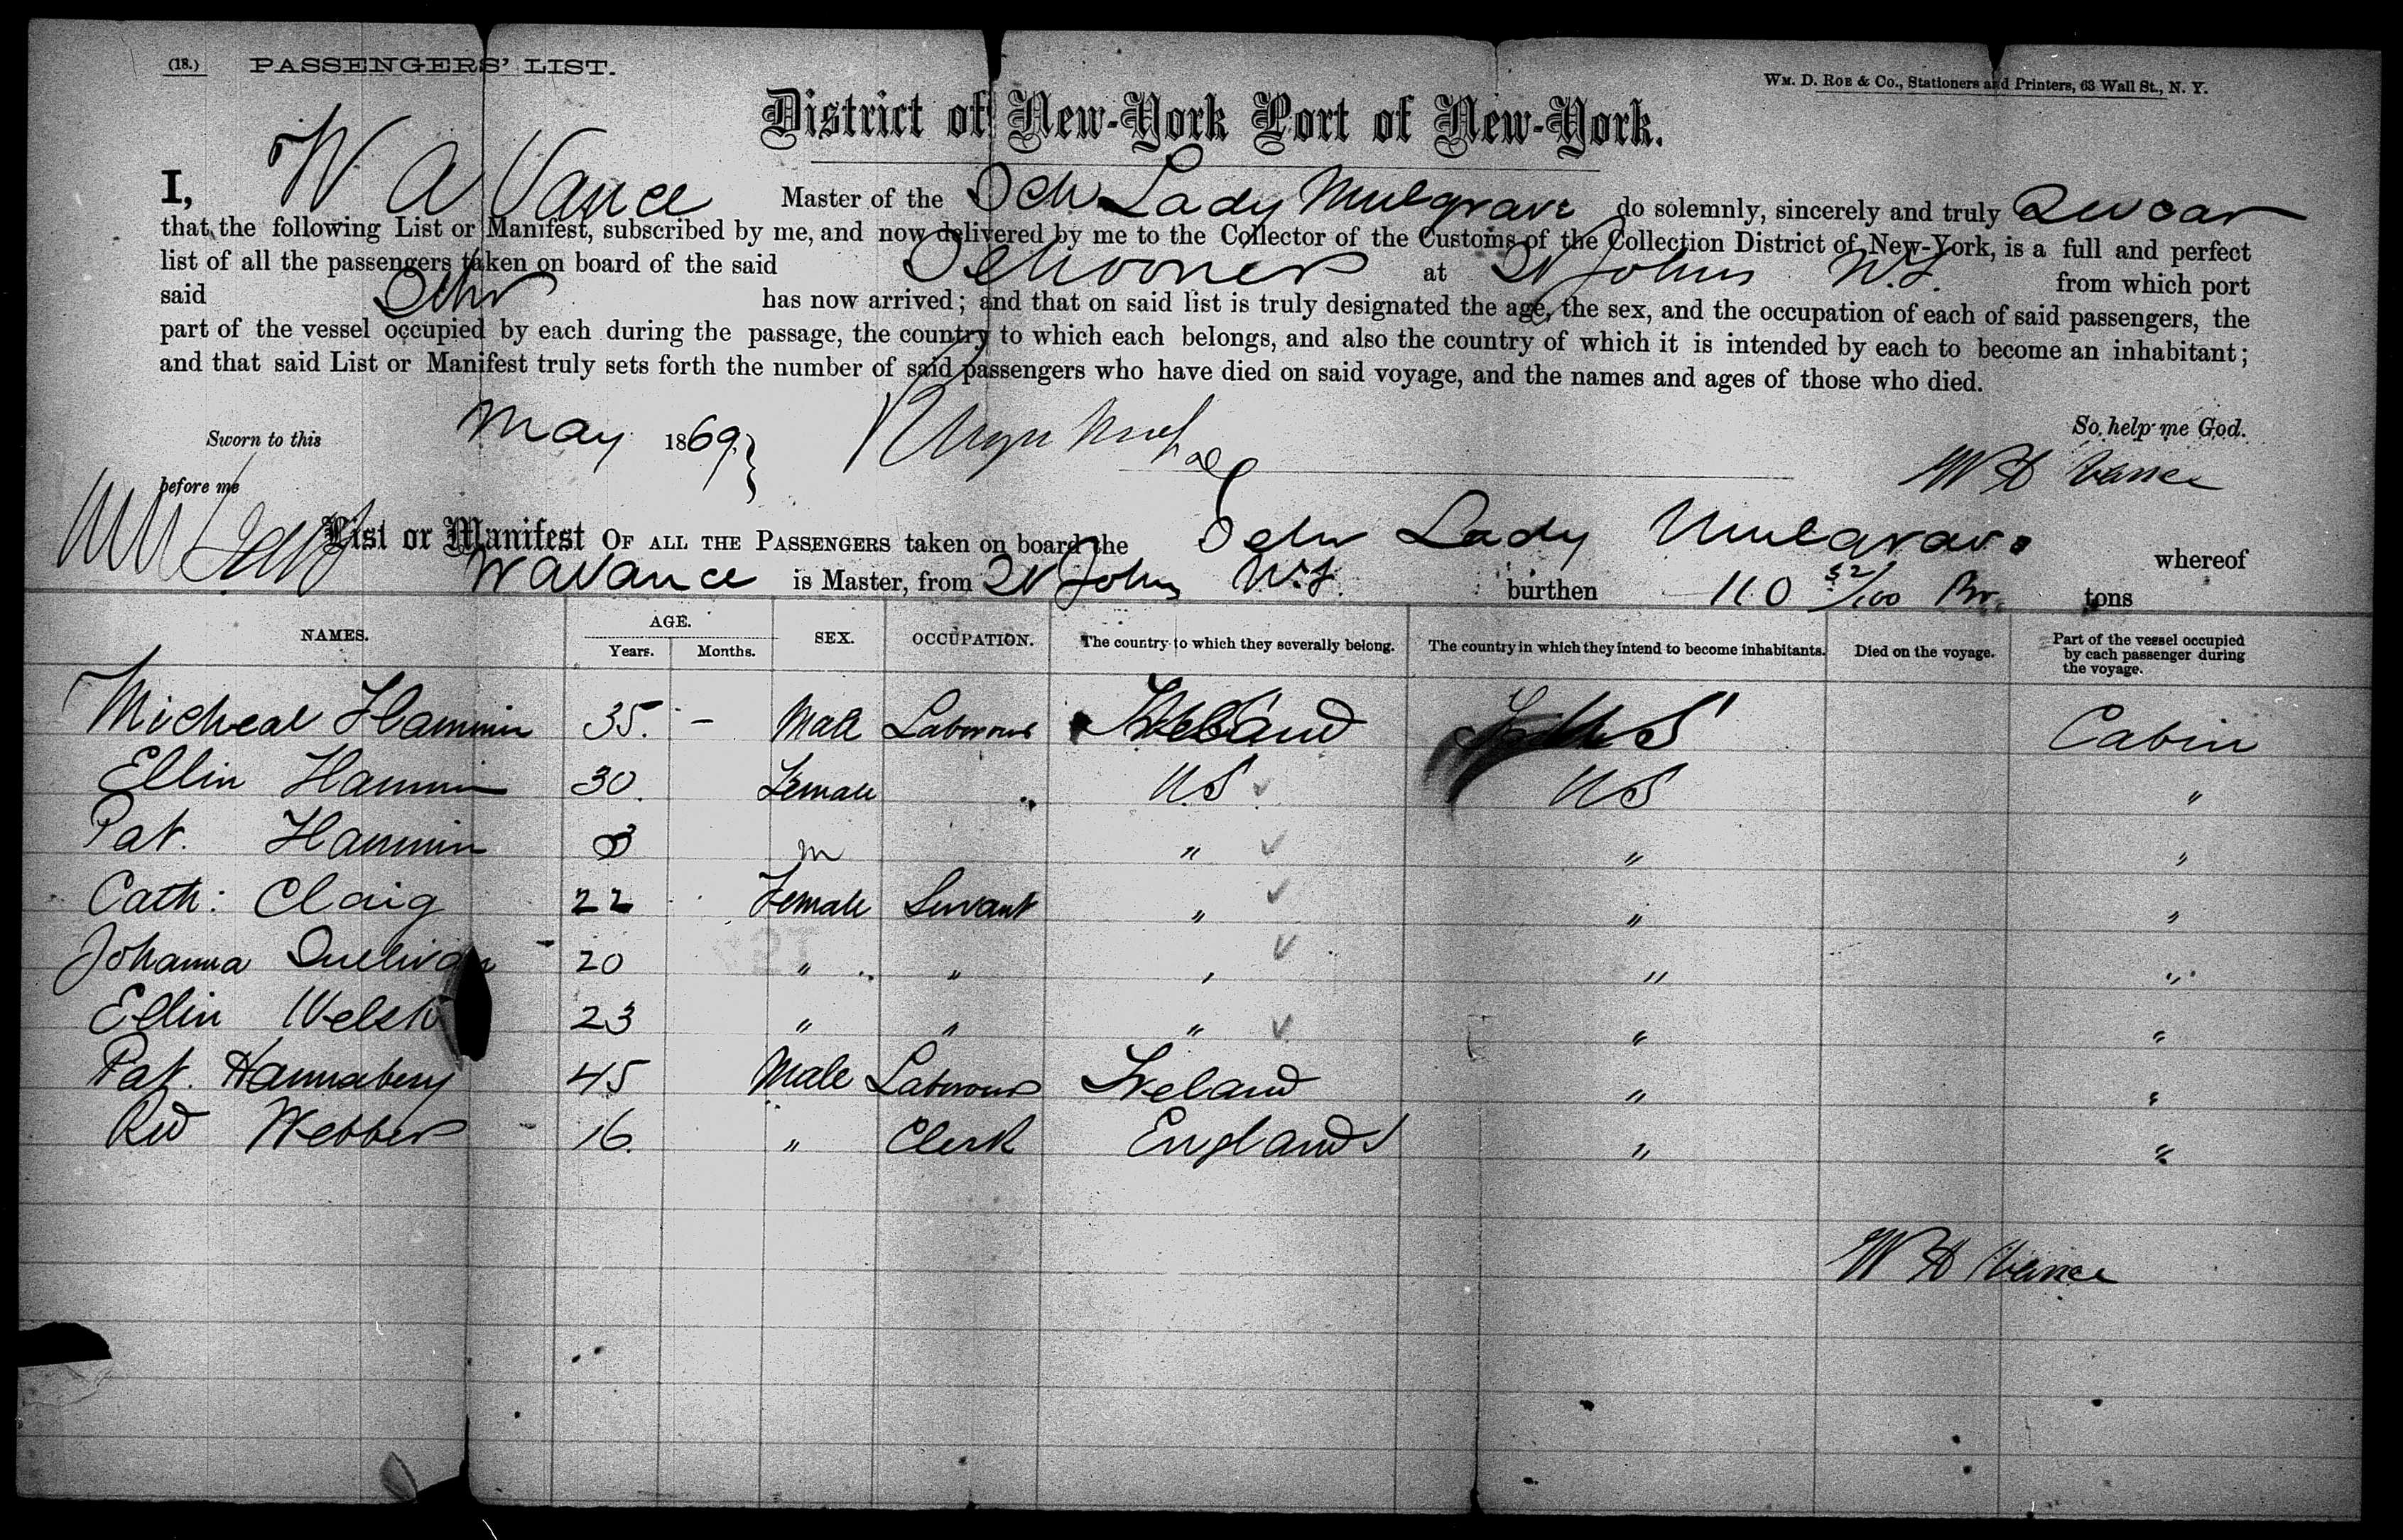 (18.) PASSENGERS' LIST.
WM. D. ROE & CO., Stationers and Printers, 63 Wall St., N. Y.
District of New-York Port of New-York.
I, W A Vance Master of the Sch Lady Mulgrave do solemnly, sincerely and truly Swear
that the following List or Manifest, subscribed by me, and now delivered by me to the Collector of the Customs of the Collection District of New-York, is a full and perfect
list of all the passengers taken on board of the said Schooner at St Johns N.F. from which port
said Schr has now arrived; and that on said list is truly designated the age, the sex, and the occupation of each of said passengers, the
part of the vessel occupied by each during the passage, the country to which each belongs, and also the country of which it is intended by each to become an inhabitant;
and that said List or Manifest truly sets forth the number of said passengers who have died on said voyage, and the names and ages of those who died.
So help me God.
Sworn to this May 1869
W A Vance
before me
List or Manifest OF ALL THE PASSENGERS taken on board the Schr Lady Mulgrave whereof
W A Vance is Master, from St Johns N.F. burthen 110 52/100 Br. tons
NAMES. AGE. Years. Months. SEX. OCCUPATION. The country to which they severally belong. The country in which they intend to become inhabitants. Died on the voyage. Part of the vessel occupied by each passenger during the voyage.
Micheal Hammin 35. – Male Labourer Ireland U S Cabin
Ellin Hammin 30. Female U.S U S "
Pat. Hammin m " " "
Cath: Claig 22 Female Servant " " "
Johanna Sullivan 20 " " " " "
Ellin Welsh 23 " " " " "
Pat. Hannabery 45 Male Labourer Ireland " "
Webber 16. " Clerk England " "
W A Vance